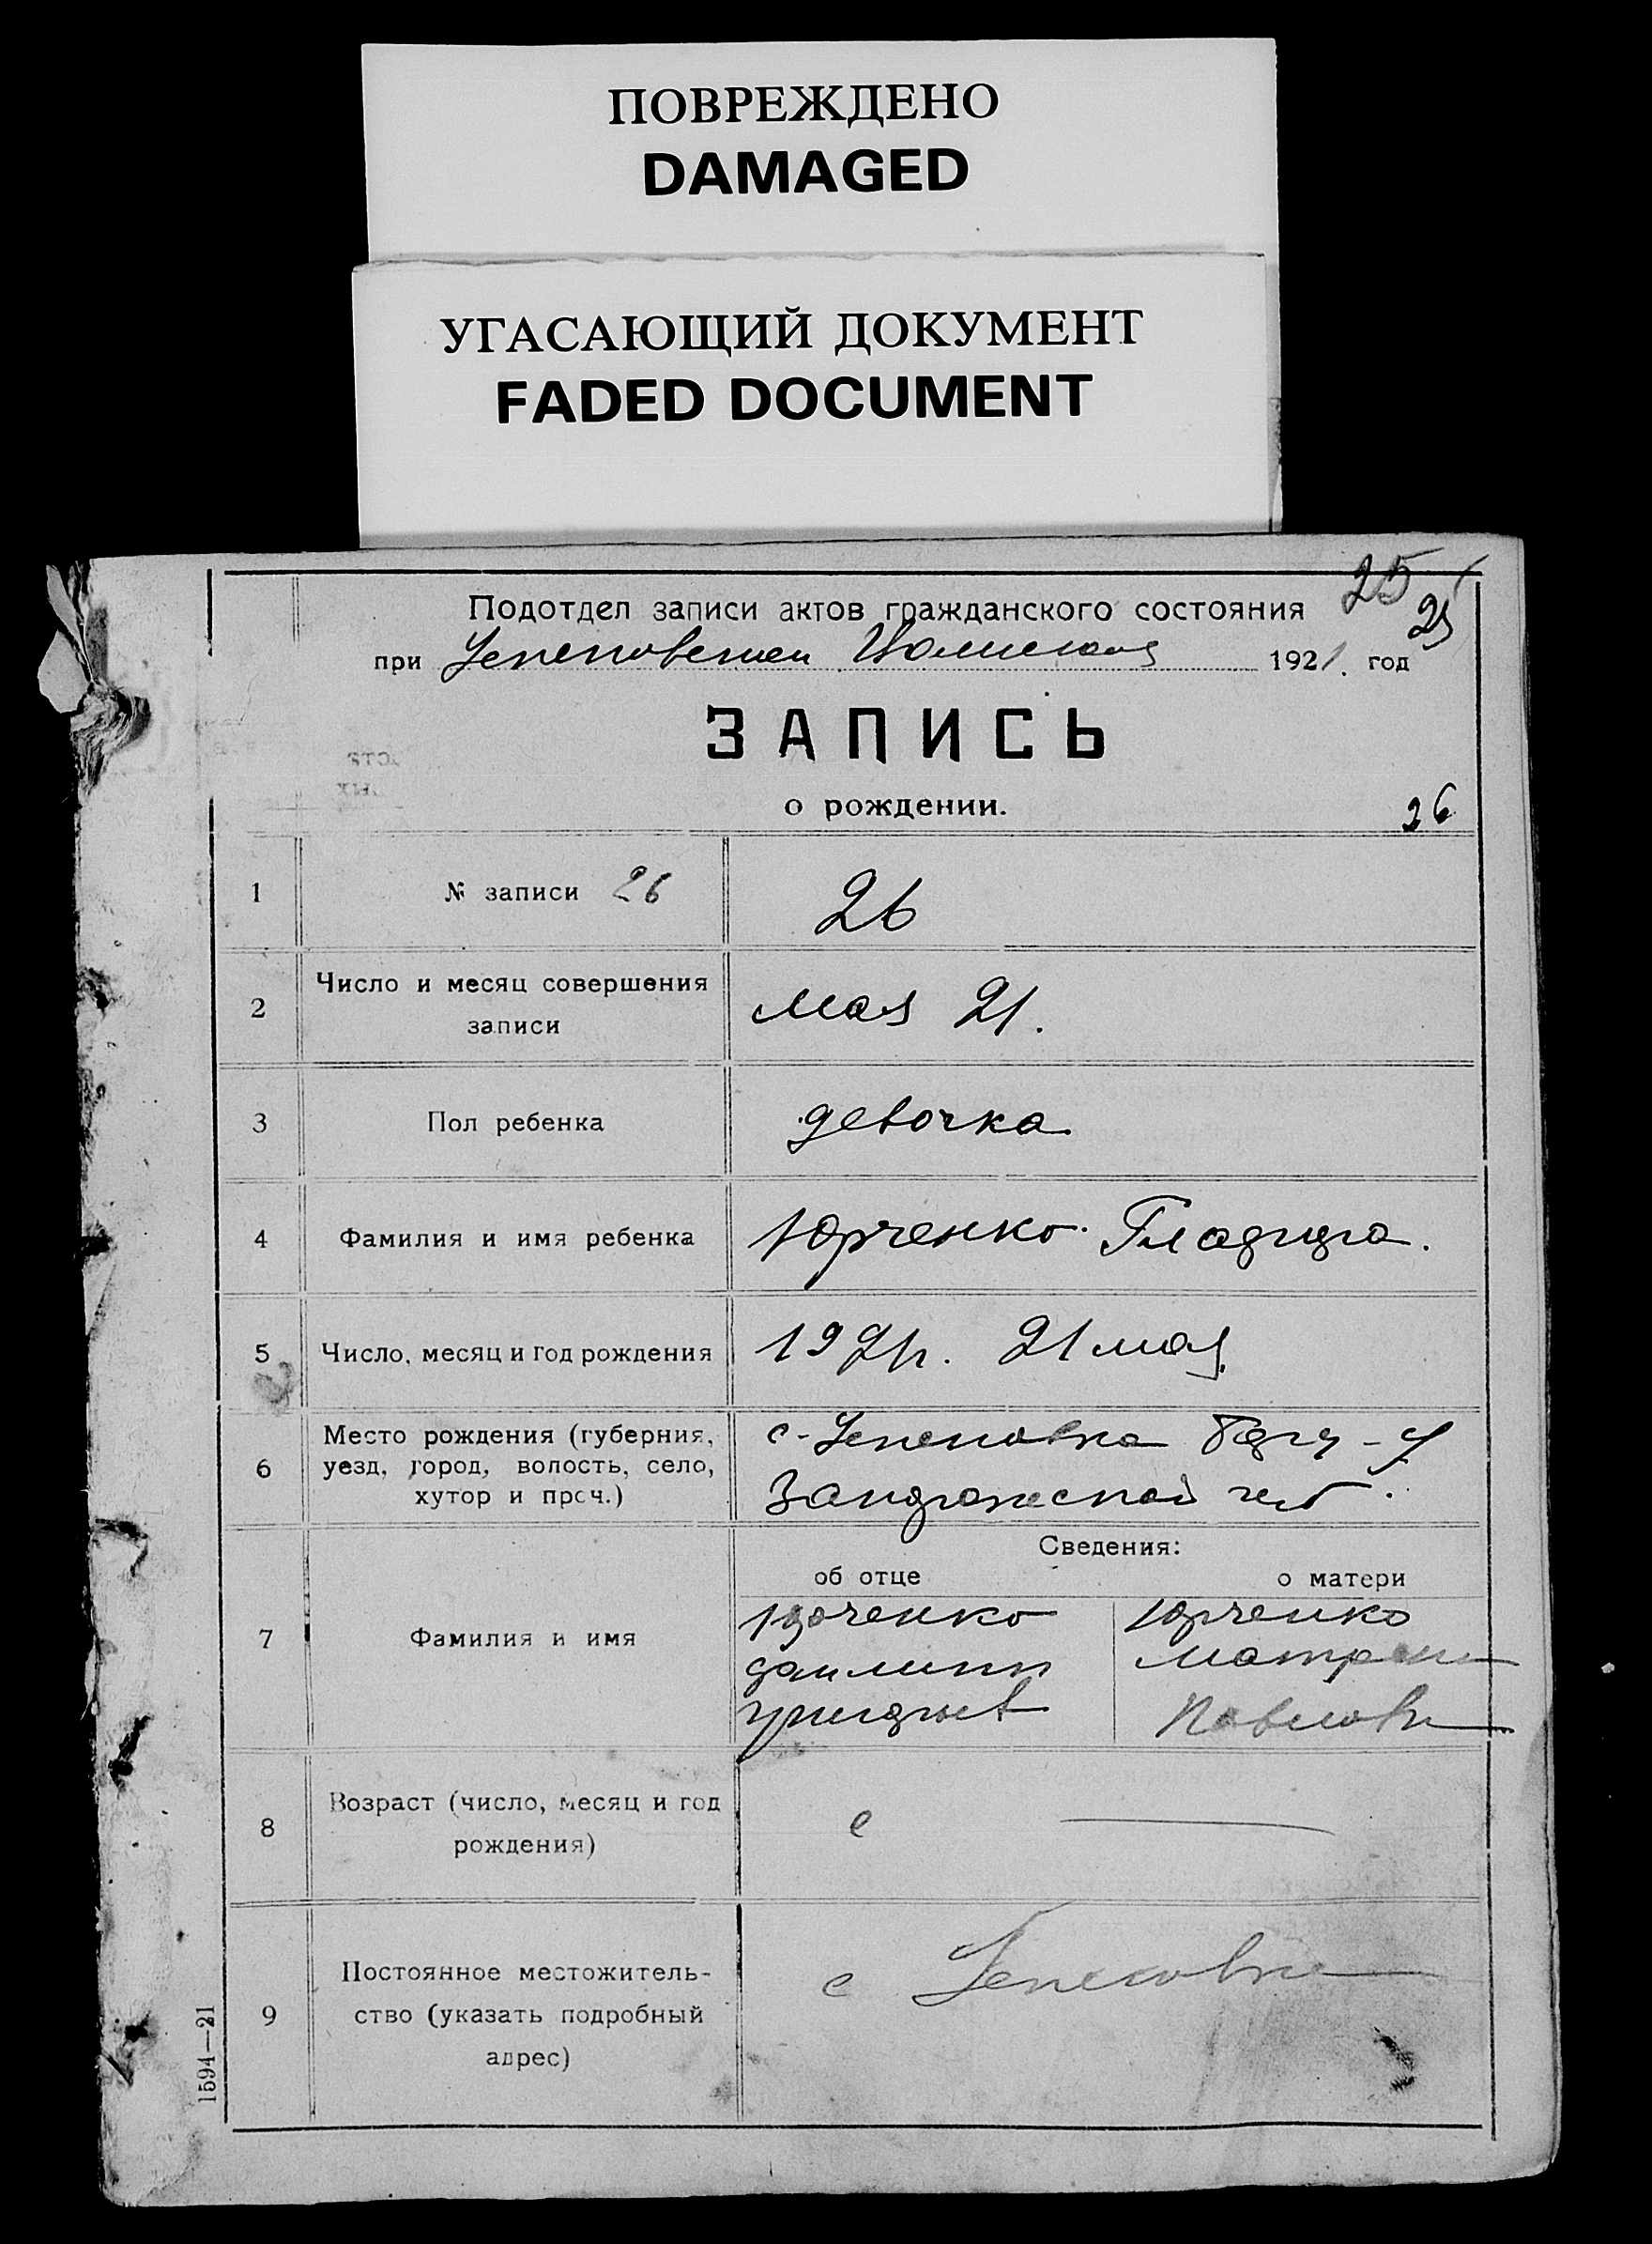 ПОВРЕЖДЕНО
DAMAGED
УГАСАЮЩИЙ ДОКУМЕНТ
FADED DOCUMENT
25
25
Подотдел записи актов гражданского состояния
при 1921. год
ЗАПИСЬ
о рождении.
26
1 № записи 26 26
2 Число и месяц совершения записи мая 21.
3 Пол ребенка девочка
4 Фамилия и имя ребенка Юрченко
5 Число, месяц и год рождения 1921г. 21 мая
6 Место рождения (губерния,
уезд, город, волость, село,
хутор и проч.)
с-
Сведения:
об отце о матери
7 Фамилия и имя
Юрченко Юрченко
Матрена
Павлов
8 Возраст (число, месяц и год
рождения)
9 Постоянное местожитель-
ство (указать подробный
адрес)
с
1594—21